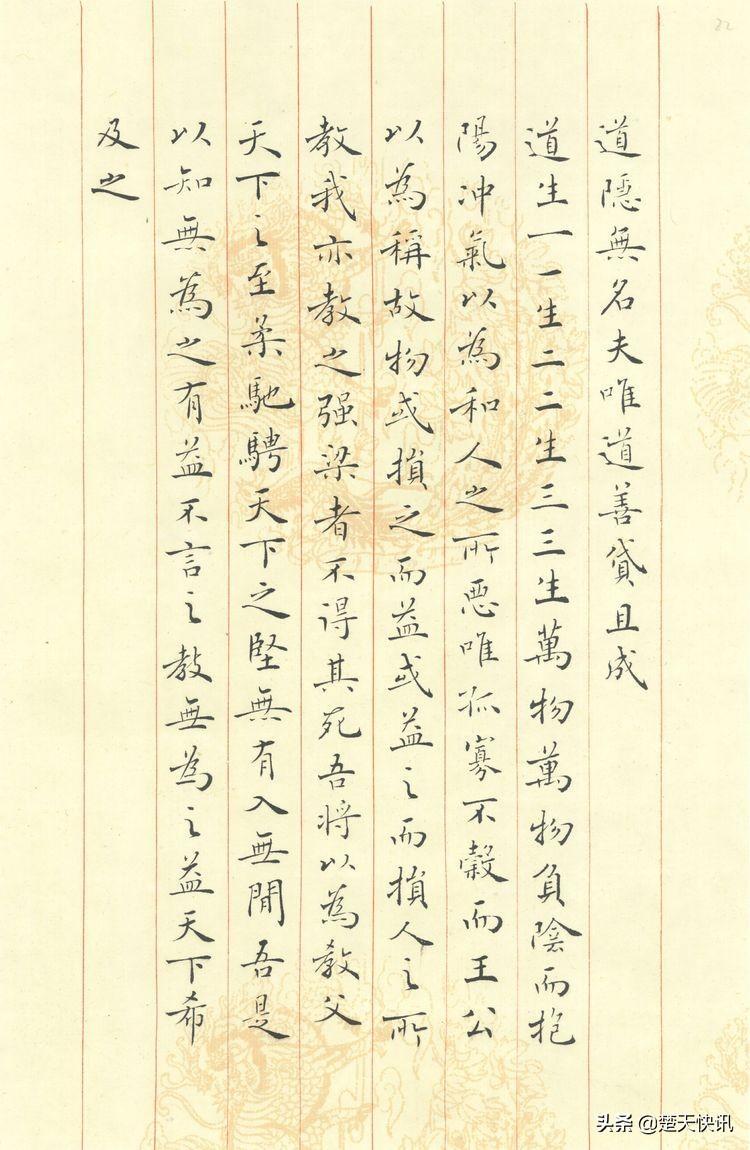 22
道隱無名夫唯道善貸且成
道生一一生二二生三三生萬物萬物負陰而抱
陽沖氣以為和人之所惡唯孤寡不穀而王公
以為稱故物或損之而益或益之而損人之所
教我亦教之强梁者不得其死吾將以為教父
天下之至柔馳騁天下之堅無有入無閒吾是
以知無為之有益不言之教無為之益天下希
及之
头条 @楚天快讯